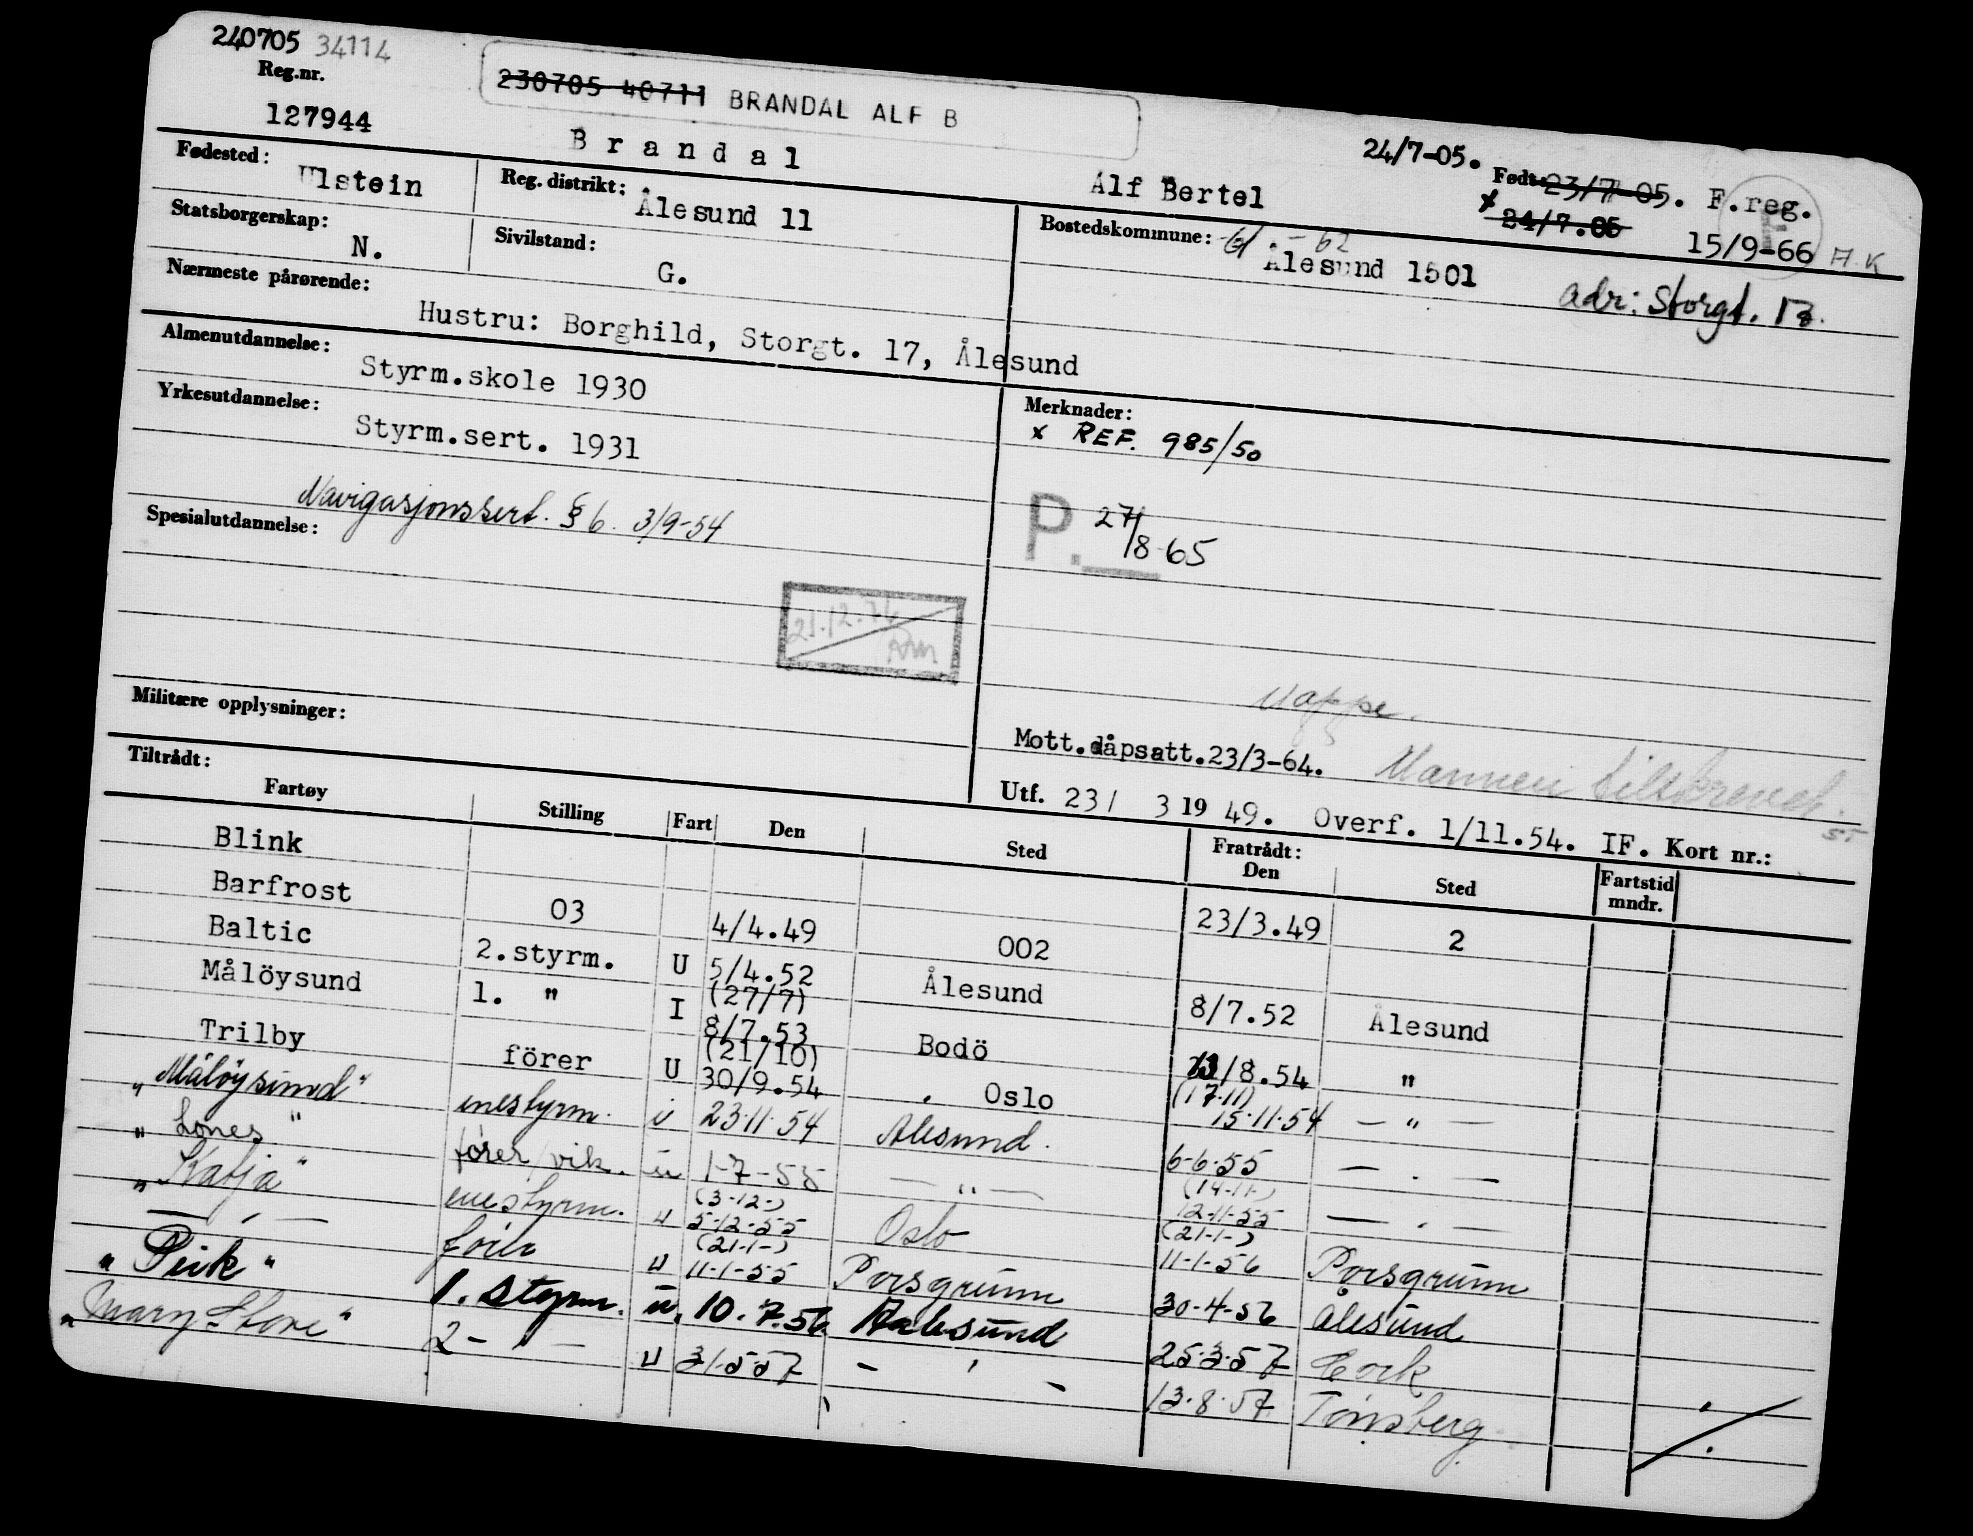 240705 34114
Reg.nr.
230705 40711 BRANDAL ALF B
127944
Brandal
Alf Bertel
24/7-05.
Født: 23/7 05. F.reg.
x 24/7.05
15/9-66 A.K
Fødested: Ulstein
Reg. distrikt: Ålesund 11
Bostedskommune: -61.-62
Ålesund 1501
adr: Storgt.
Statsborgerskap: N.
Sivilstand: G.
Nærmeste pårørende: Hustru: Borghild, Storgt. 17, Ålesund
Almenutdannelse: Styrm.skole 1930
Yrkesutdannelse: Styrm.sert. 1931
Navigasjonssert. § 6. 3/9-54
Spesialutdannelse:
21.12.76
Merknader:
x REF. 985/50
P. 27/8-65
Mappe.
Militære opplysninger:
Mott.dåpsatt.23/3-64. Mannen
Utf. 23/ 3 19 49. Overf. 1/11.54. IF. Kort nr.:
Tiltrådt:
Fratrådt:
Fartøy Stilling Fart Den Sted Den Sted Fartstid mndr.
Blink 23/3.49 2
Barfrost 03 4/4.49 002
Baltic 2.styrm. U 5/4.52 Ålesund 8/7.52 Ålesund
(27/7)
Målöysund 1. " I 8/7.53 Bodö /8.54 "
(21/10) (17.11)
Trilby förer U 30/9.54 Oslo 15.11.54 - " -
"Målöysund" enestyrm. u 23.11.54 Ålesund. 6-6-55 - . -
"Lones" fører/vik. u 1-7-55 - " - 12-11-55 - . -
(3-12-) (14-11-)
"Katja" enestyrm. u 5-12-55 Oslo 11-1-56 Porsgrunn
(21-1-) (21-1-)
- ' - förer u 11-1-55 Porsgrunn 30-4-56 Ålesund
"Peik" 1. styrm. u. 10.7.56 Aalesund 25.3.57 Cork
"Mary Stove" 2 - ' - u 31-5-57 - ' - 13.8.57 Tönsberg